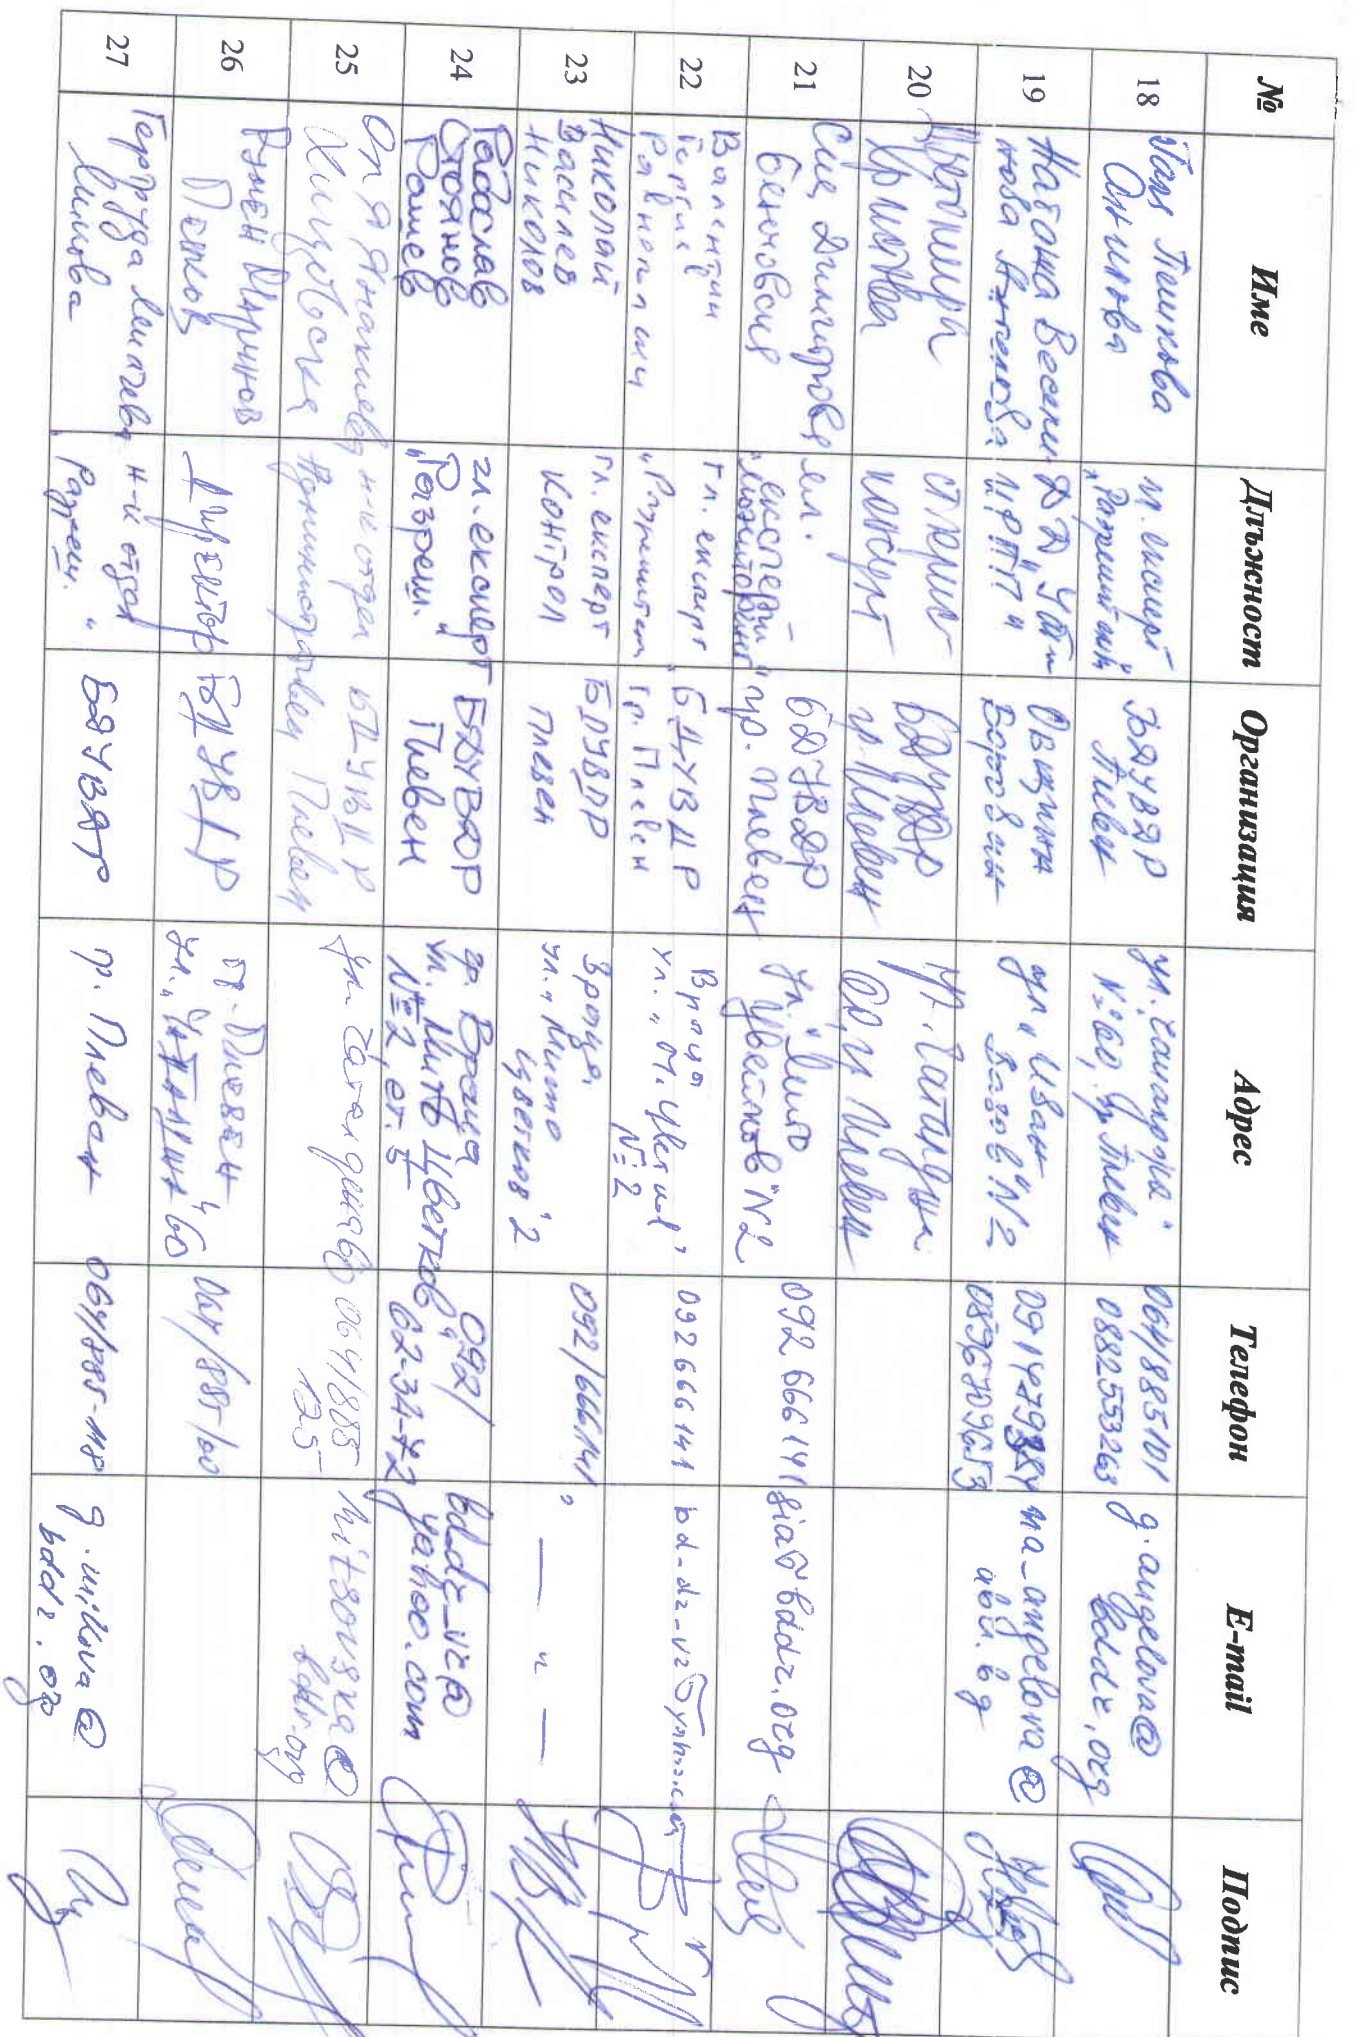 № Име Длъжност Организация Адрес Телефон E-mail Подпис
18
Ангелова
гл. експерт
"Разрешителни"
БДУВДР
Плевен
ул. "Чаталджа"
№ 60, гр. Плевен
064/885101
0882553263
g.angelova@
bddr.org
19
Наташа
Ангелова
Община
Борован
ул. "Иван
Вазов" №2
ma_angelova@
abv.bg
20
Христова
старши
юрисконсулт
БДУВДР
гр. Плевен
60, гр. Плевен
21
Сия Димитрова
Бенчовска
гл.
експерт
"Мониторинг"
БДУВДР
гр. Плевен
ул. "Мито
Цветков" №2
092 666141
sia@bddr.org
22
Валентин
гл. експерт
БДУВДР
гр. Плевен
Враца
ул. "М. Цветков"
№ 2
092666141
23
Николай
Василев
Николов
гл. експерт
контрол
БДУВДР
Плевен
Враца,
ул. "Мито
Цветков" 2
092/666141
— " —
24
Радослав
Стоянов
Рашев
гл. експерт
"Разреш."
БДУВДР
Плевен
гр. Враца
ул. "Мито Цветков"
№2, ет. 5
092/
62-34-72
bddr_vr@
yahoo.com
25
Оля Янакиева
Хицовска
н-к отдел
Административен
БДУВДР
Плевен
ул. Чаталджа 60
064/885
125
hitsovska@
bddr.org
26
Румен Маринов
Пенков
Директор
БДУВДР
гр. Плевен
ул. "Чаталджа" 60
064/885100
27
Гертруда
Милова
н-к отдел
"Разреш."
БДУВДР
гр. Плевен
064/885-118
g.milova@
bddr.org